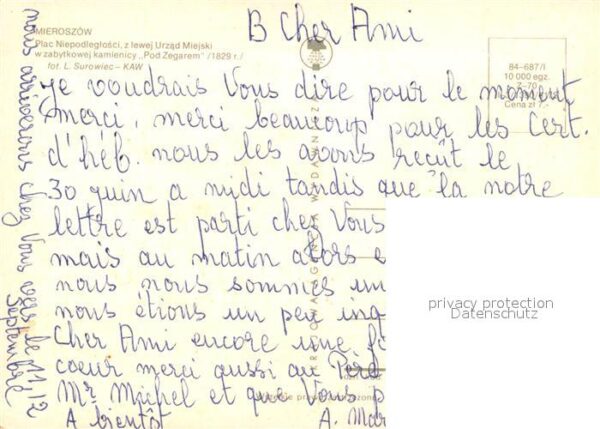 B Cher Ami
MIEROSZÓW
Plac Niepodległości, z lewej Urząd Miejski
w zabytkowej kamienicy „Pod Zegarem" /1829 r./
fot. L. Surowiec – KAW
84-687/I
10 000 egz.
Z-70
Cena zł 7.-
je voudrais Vous dire pour le moment
merci, merci beaucoup pour les Cert.
d'héb. nous les avons reçût le
30 juin a midi tandis que la notre
lettre est parti chez Vous
mais au matin alors e
nous nous sommes un
nous étions un peu inq
Cher Ami encore une fo
coeur merci aussi au Père
Mr Michel et que Vous p
A bientôt
A. Mar
nous arriverons chez Vous vers le 11/12
Septembre
privacy protection
Datenschutz